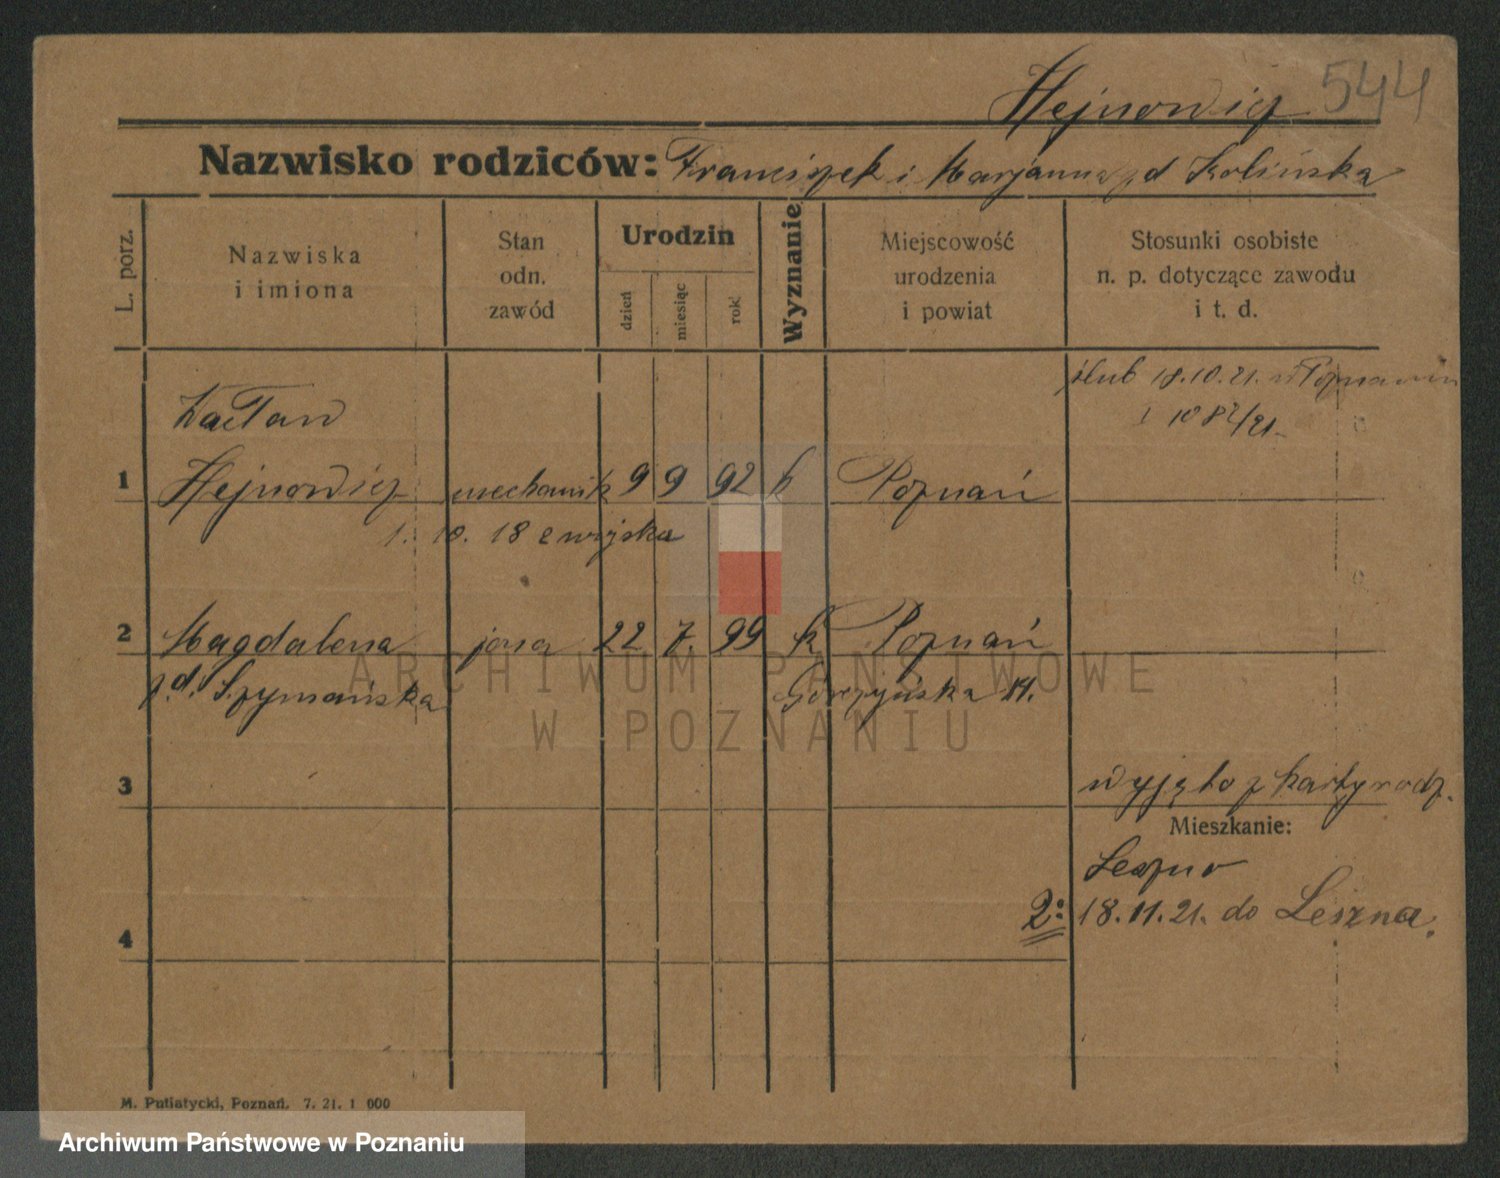 Hejnowicz 544
Nazwisko rodziców: Franciszek i Marjanna z d Kolińska
L. porz.
Nazwiska
i imiona
Stan
odn.
zawód
Urodzin
dzień
miesiąc
rok
Wyznanie
Miejscowość
urodzenia
i powiat
Stosunki osobiste
n. p. dotyczące zawodu
i t. d.
ślub 18.10.21. w Poznaniu
Wacław
1 Hejnowicz mechanik 9 9 92 k Poznań
1. 10. 18 z wojska
2 Magdalena żona 22 7. 99 k Poznań
z. d. Szymańska Górczyńska 11.
ARCHIWUM PAŃSTWOWE
W POZNANIU
3 wyjęto z karty rodz.
Mieszkanie:
Leszno
2: 18.11.21. do Leszna.
4
M. Putiatycki, Poznań. 7. 21. 1 000
Archiwum Państwowe w Poznaniu